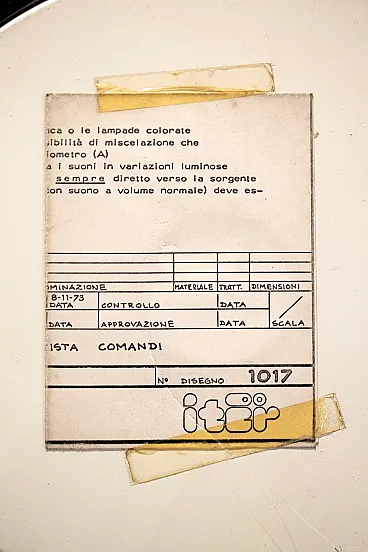 nca o le lampade colorate
sibilità di miscelazione che
iometro (A)
a i suoni in variazioni luminose
sempre diretto verso la sorgente
con suono a volume normale) deve es-
OMINAZIONE MATERIALE TRATT. DIMENSIONI
8-11-73
DATA CONTROLLO DATA
DATA APPROVAZIONE DATA SCALA
ISTA COMANDI
N° DISEGNO 1017
iter